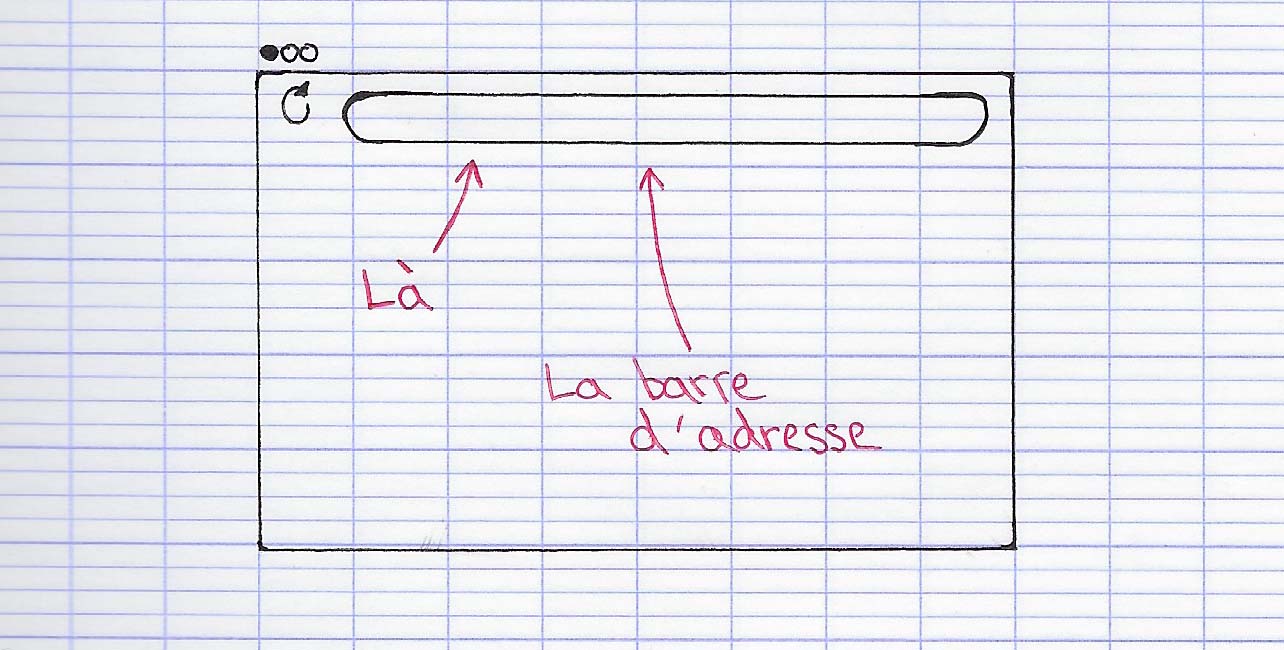 Là
La barre
d'adresse